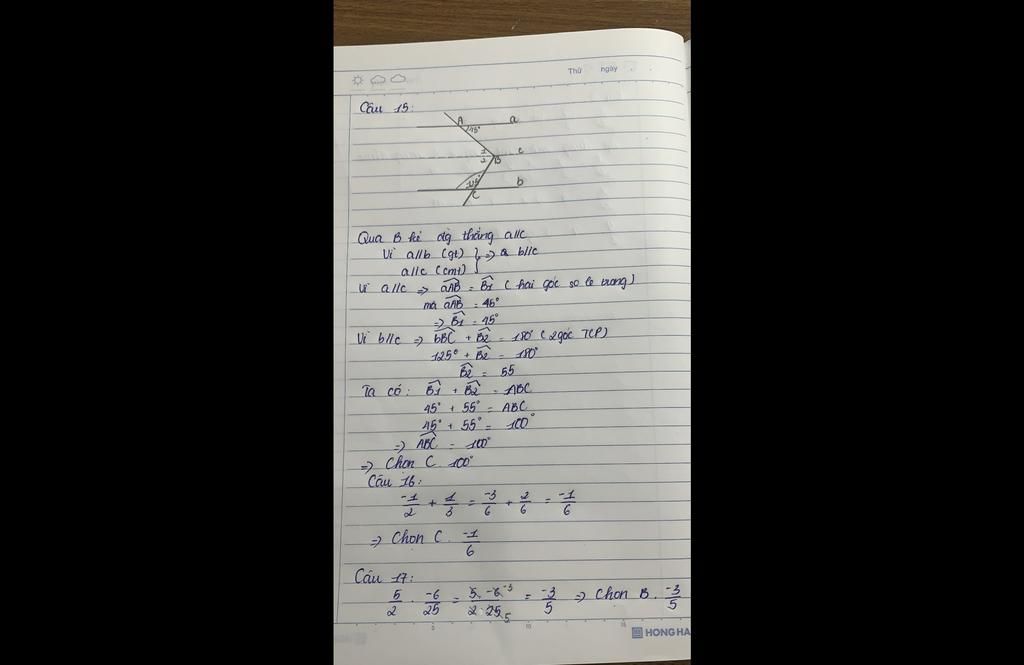 Thứ ngày
Câu 15:
A a
45°
1 c
2 B
125°
b
C
Qua B kẻ đg thẳng a//c
Vì a//b (gt) } => b//c
a//c (cmt)
Vì a//c => aAB = B1 (hai góc so le trong)
mà aAB = 45°
=> B1 = 45°
Vì b//c => bBC + B2 = 180° (2 góc TCP)
125° + B2 = 180°
B2 = 55
Ta có: B1 + B2 = ABC
45° + 55° = ABC
45° + 55° = 100°
=> ABC = 100°
=> Chọn C. 100°
Câu 16:
-1/2 + 1/3 = -3/6 + 2/6 = -1/6
=> Chọn C. -1/6
Câu 17:
5/2 . -6/25 = 5. -6 -3 / 2 25 5 = -3/5 => Chọn B. -3/5
HONG HA